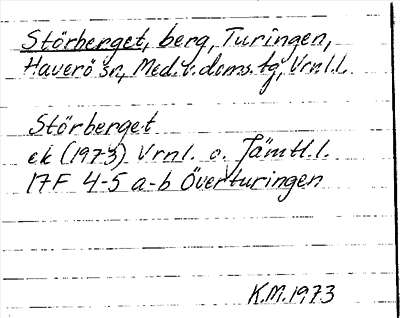 Störberget, berg, Turingen,
Haverö sn, Med. v. doms. tg, Vrnl.l.
Störberget
ek (1973) Vrnl. o. Jämtl.l.
17F 4-5 a-b Överturingen
K.M. 1973